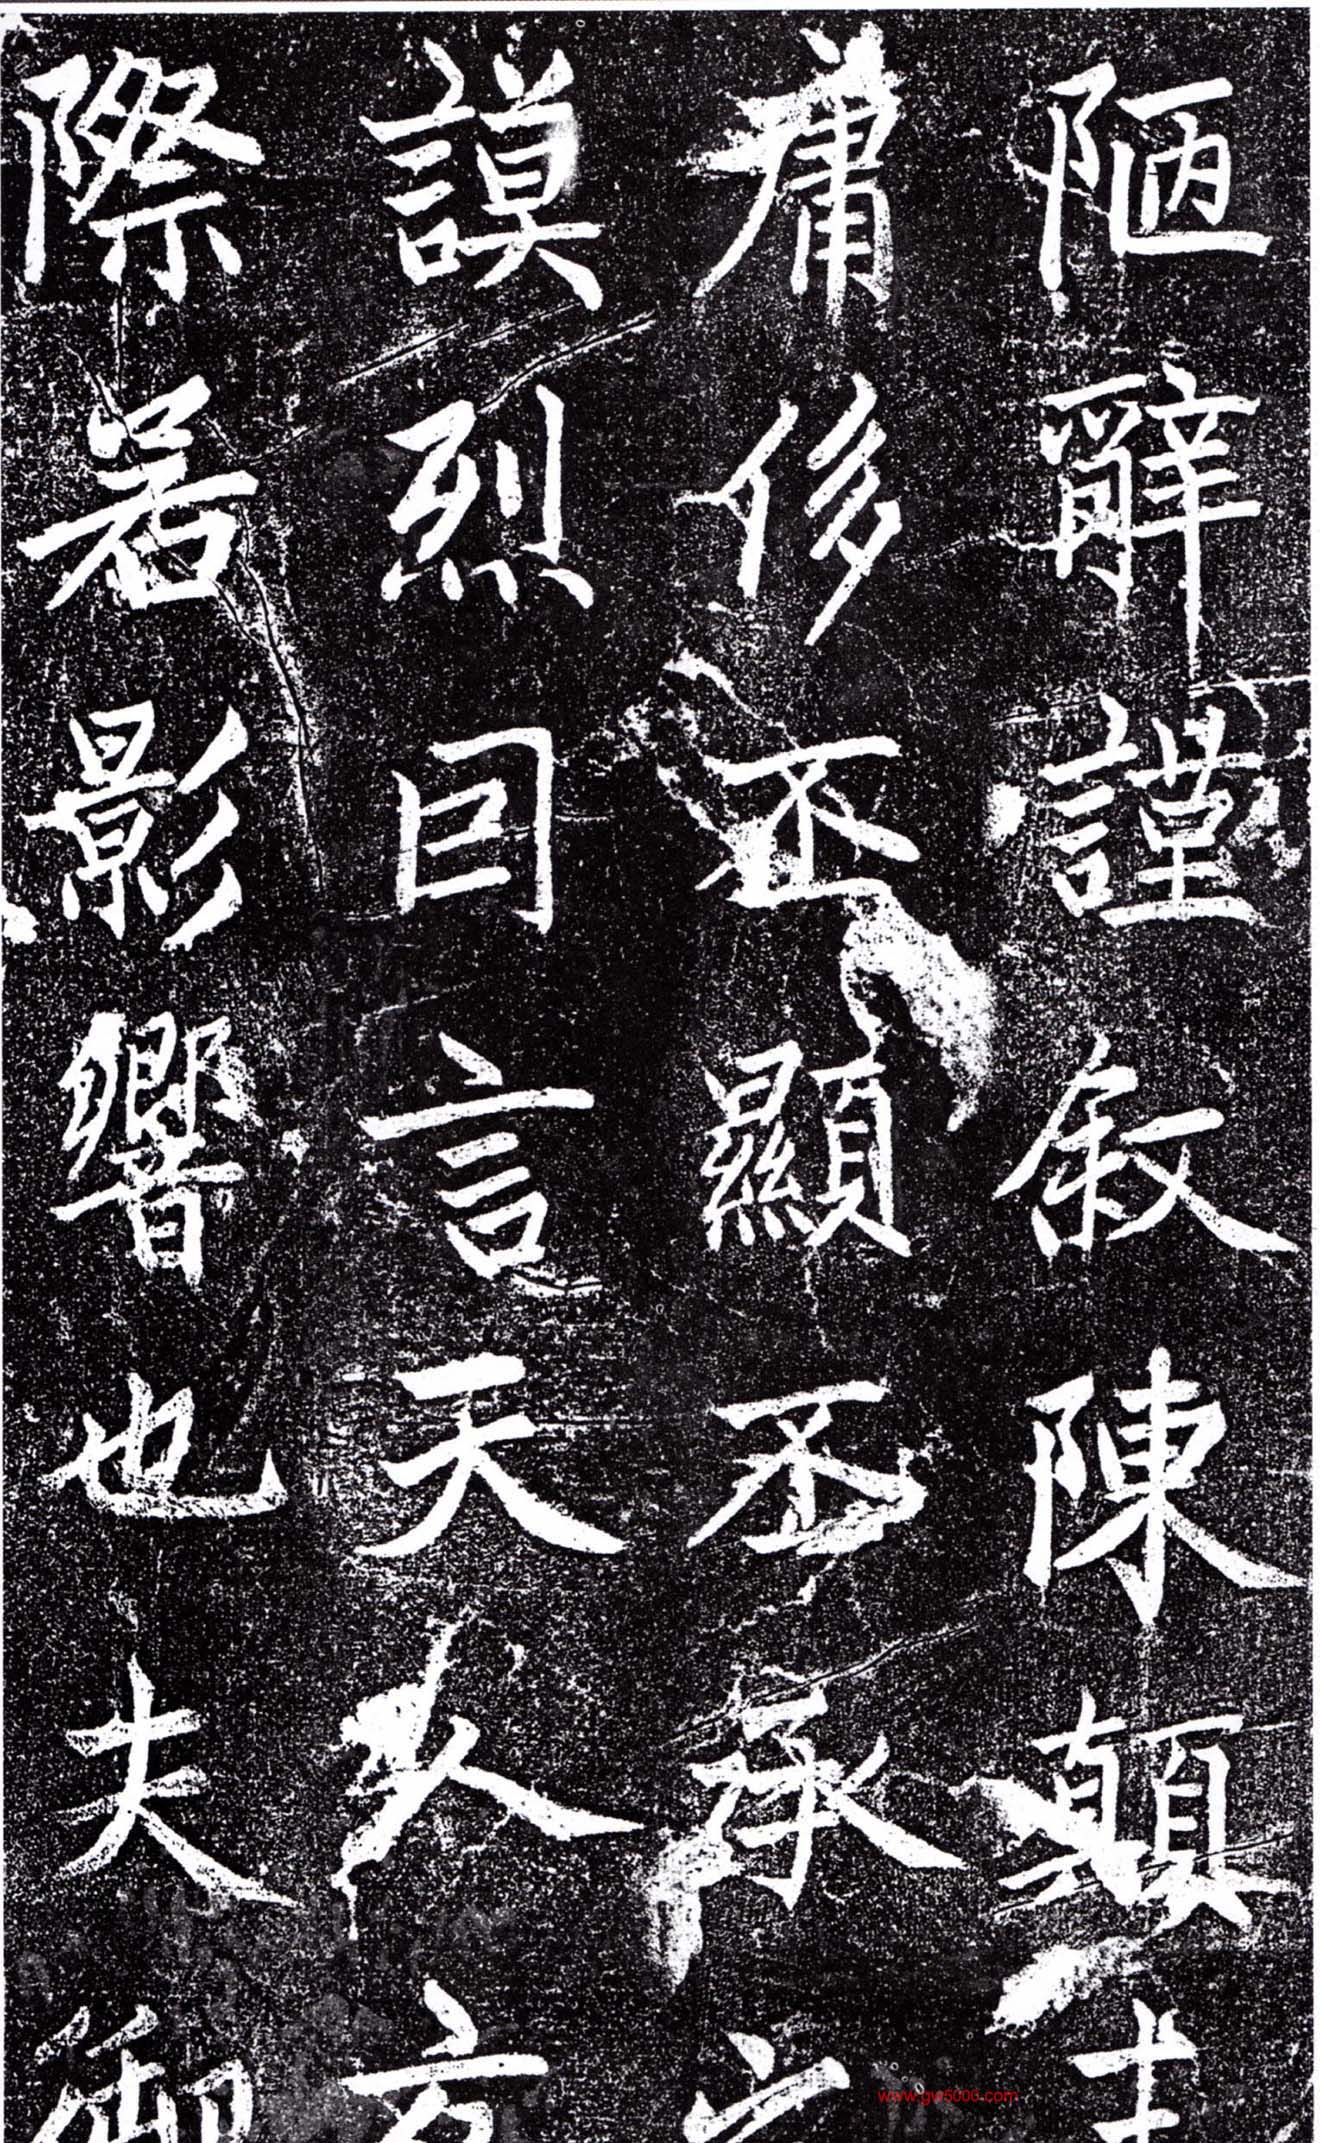 陋辭謹敘陳顛
庸侈丕顯丕承
謨烈因言天人
際若影響也夫
www.gw5000.com